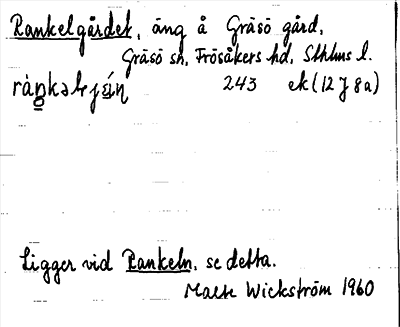 Rankelgärdet, äng å Gräsö gård,
Gräsö sn, Frösåkers hd, Sthlms l.
243 ek (12 J 8a)
Ligger vid Rankeln, se detta.
Malte Wickström 1960